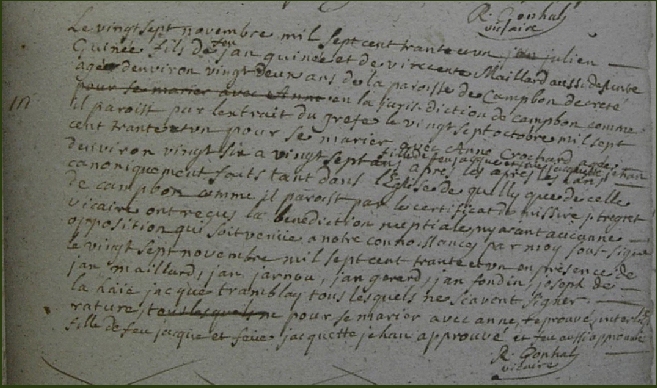 R. Gonhal
vicaire
Le vingt sept novembre mil sept cent trante et un jan julien
Guinée fils de feu jan guinée et de vincente Maillard aussi defunte
agé denviron vingt deux ans de la paroisse de Campbon decreté
pour se marier avec Anne en la jurisdiction de campbon comme
il paroist par lentrait du grefe le vingt sept octobre mil sept
cent trante et un pour se marier avec Anne Crochard agee
denviron vingt six a vingt sept ans fille de feu jacque et feue jacquette jehan
canoniquement fouts tant dans l'Eglise de qu'ils que de celle
de campbon comme il paroist par le certificat de missire p. tregret
vicaire ont reçus la benediction nuptiale ny ayant aucune
opposition qui soit venüe a notre connoissance par moy sous signé
le vingt sept novembre mil sept cent trante et un en presence de
jan maillard, jan jarnou, jan gerard, jan fondin, joseph de
la haie jacque tramblay tous lesquels ne scavent signer.
rature, tous lesquels ne pour se marier avec anne, reprouvé, interligne
fille de feu jacque et feüe jacquette jehan approuvé et feu aussi approuvé
R. Gonhal
vicaire